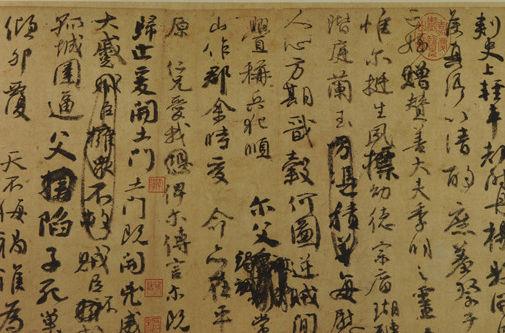 刺史上輕車都尉丹楊縣開
侯真卿以清酌庶羞祭于
亡姪贈贊善大夫季明之靈
惟爾挺生夙標幼德宗廟瑚
階庭蘭玉方憑積善每慰
人心方期戩穀何圖逆賊間
釁稱兵犯順爾父竭誠常
山作郡余時受命亦在平
原仁兄愛我俾爾傳言爾既
歸止爰開土門土門既開兇威
大蹙賊臣擁衆不救賊臣不
孤城圍逼父陷子死巢
傾卵覆天不悔禍誰為